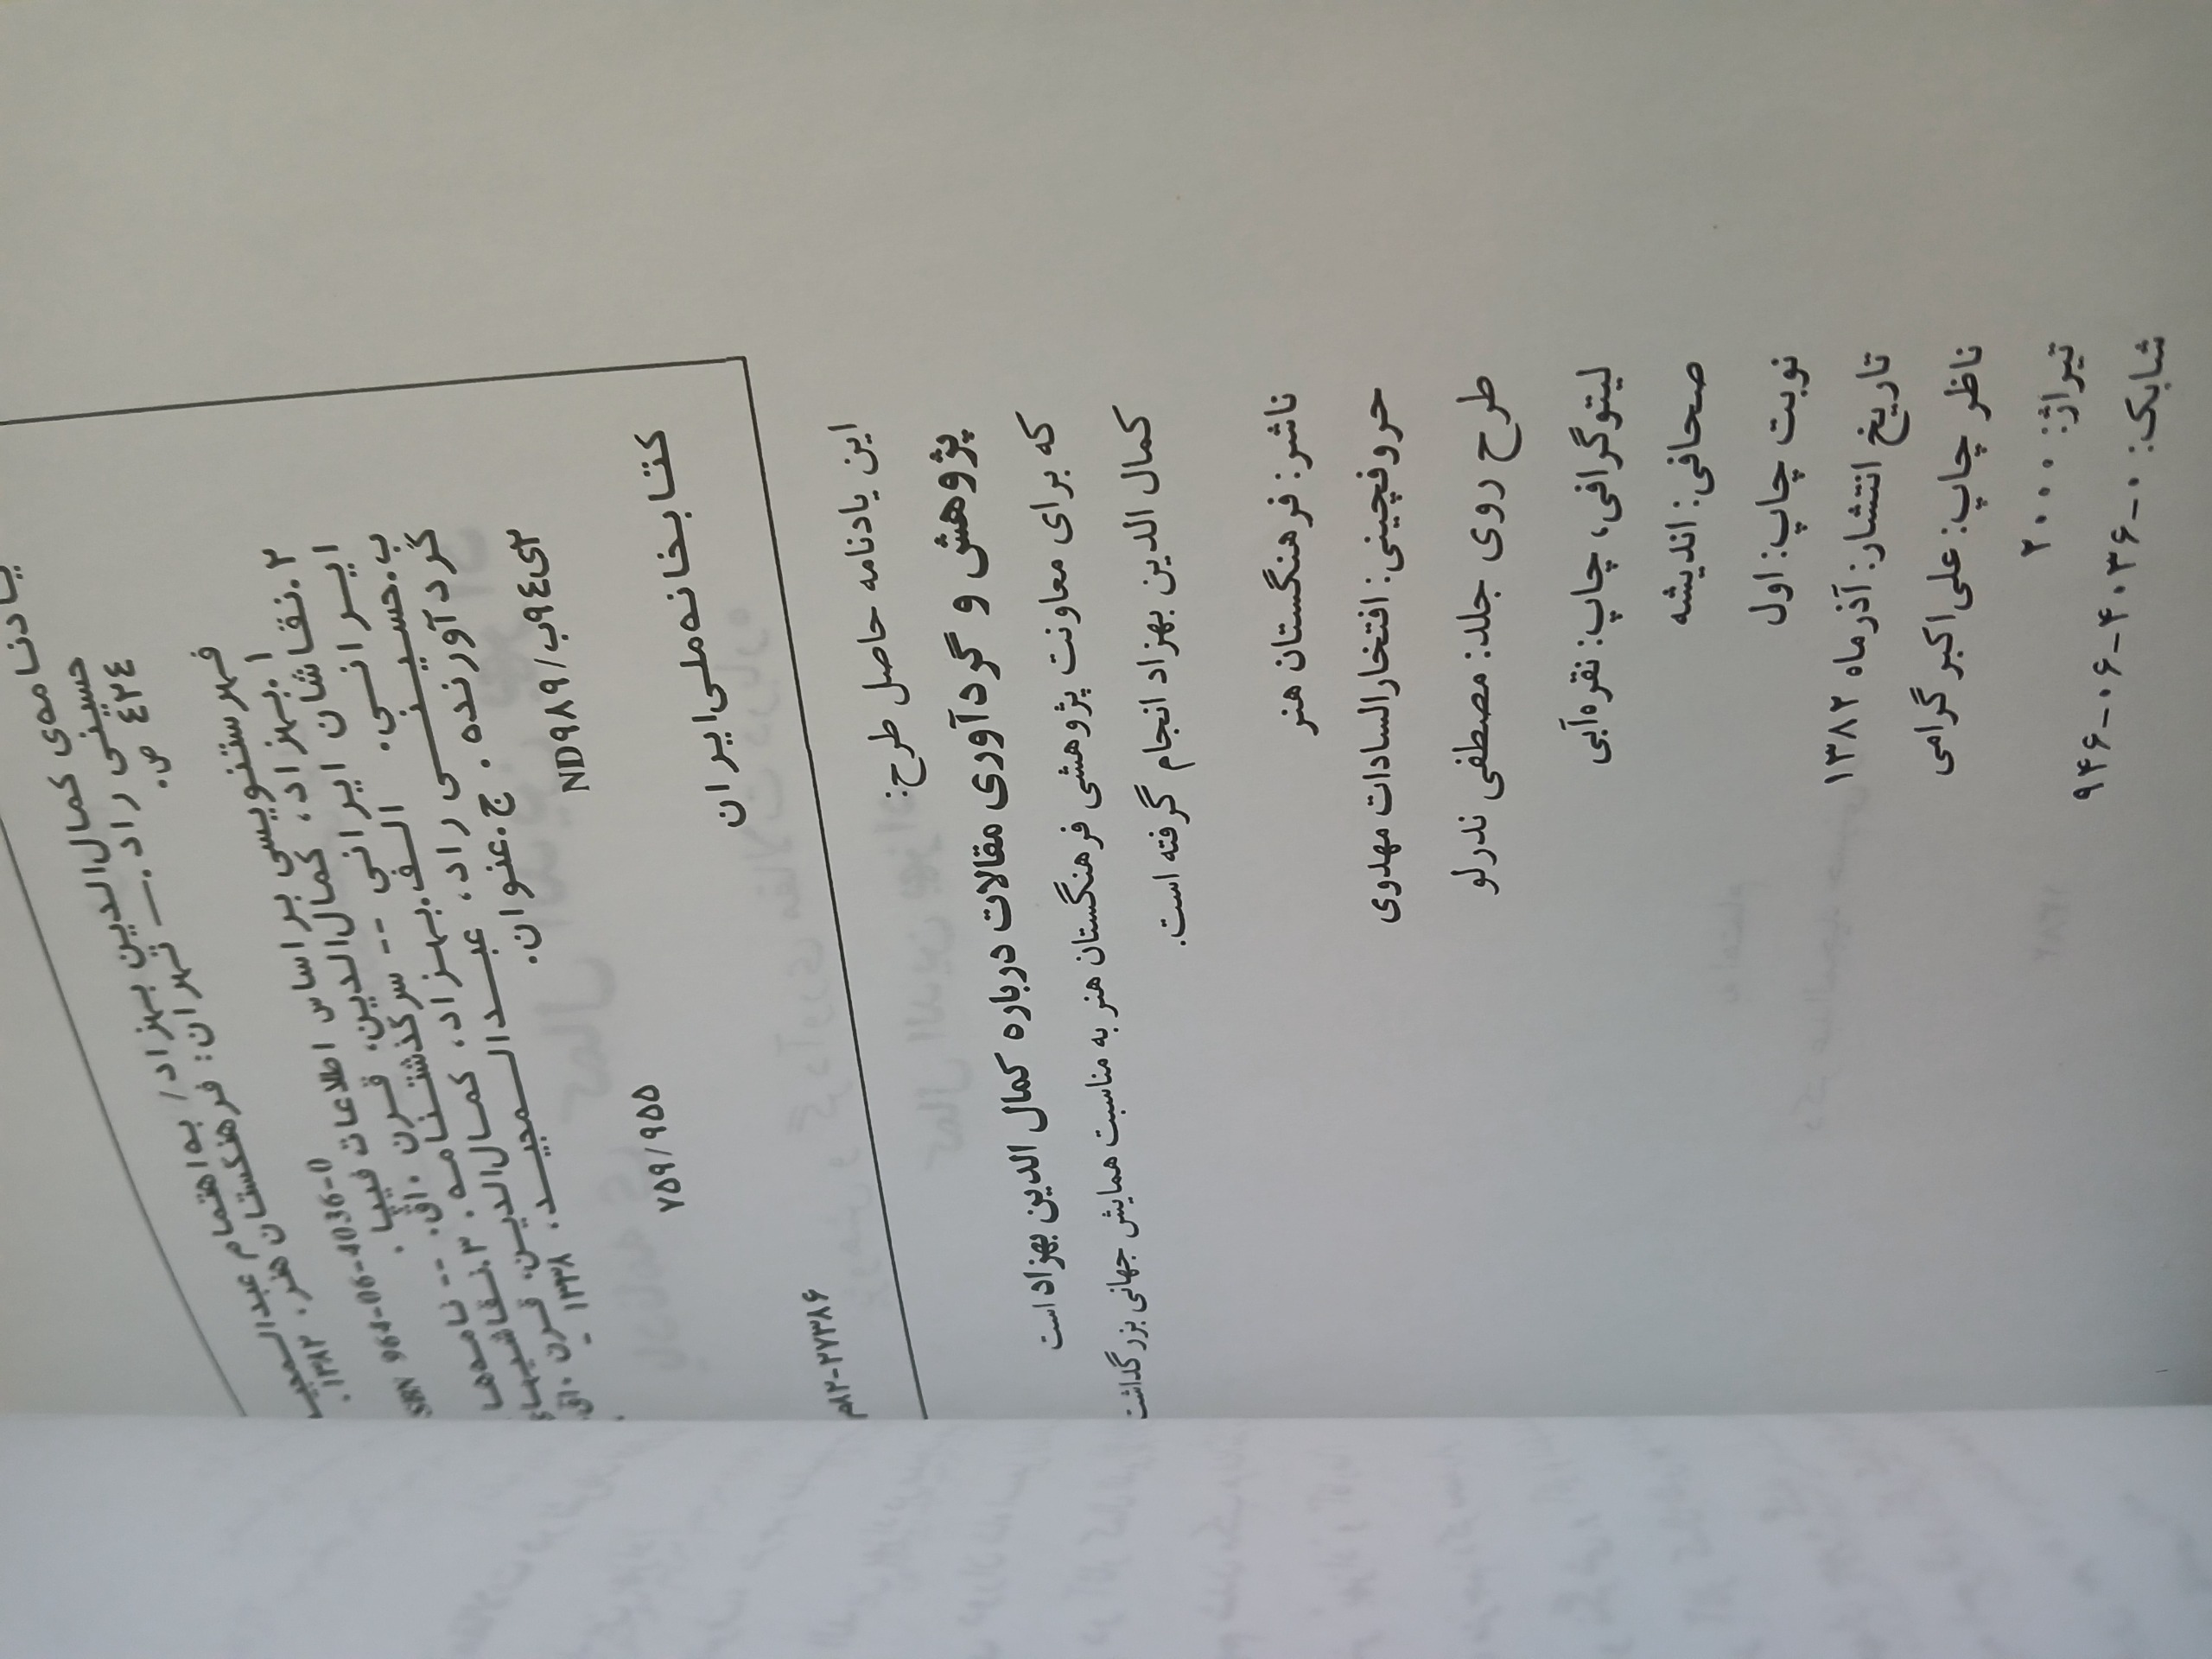 یادنامه‌ی کمال‌الدین بهزاد/ به‌اهتمام
حسینی راد. — تهران: فرهنگستان هنر، ۱۳۸۲.
٤٢٤ ص.
964-06-4036-0
فهرستنویسی براساس اطلاعات فیپا.
۱.بهزاد، کمال‌الدین، قرن ۱۰ق. -- نامه‌ها
۲.نقاشان ایرانی -- سرگذشتنامه. ۳.نقاشیهای
ایرانی. الف.بهزاد، کمال‌الدین، قرن ۱۰ق.
ب.حسینی راد، عبدالمجید، ۱۳۳۸ -
گردآورنده. ج.عنوان.
۷۵۹/۹۵۵
ND۹۸۹/ب۹٤ی۲
کتابخانه‌ملی‌ایران
۸۲-۲۷۳۸۶م
این یادنامه حاصل طرح:
پژوهش و گردآوری مقالات درباره کمال الدین بهزاد است
که برای معاونت پژوهشی فرهنگستان هنر به مناسبت همایش جهانی بزرگداشت
کمال الدین بهزاد انجام گرفته است.
ناشر: فرهنگستان هنر
حروفچینی: افتخارالسادات مهدوی
طرح روی جلد: مصطفی ندرلو
لیتوگرافی، چاپ: نقره‌آبی
صحافی: اندیشه
نوبت چاپ: اول
تاریخ انتشار: آذر ماه ۱۳۸۲
ناظر چاپ: علی‌اکبر گرامی
تیراژ: ۲۰۰۰
شابک: ۰-۴۰۳۶-۰۶-۹۴۶